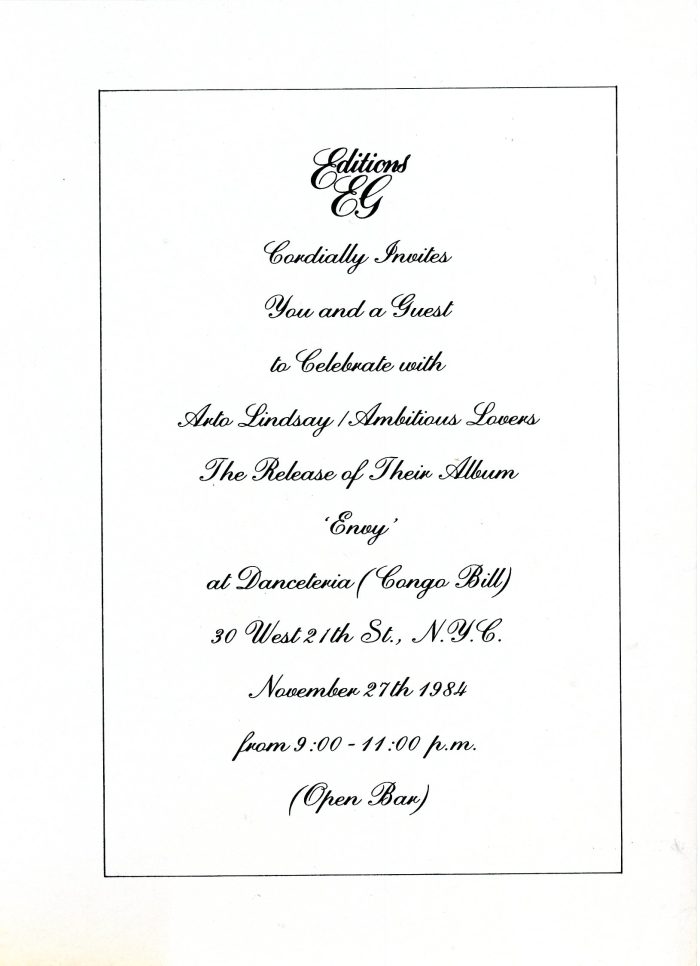 Editions
EG
Cordially Invites
You and a Guest
to Celebrate with
Arto Lindsay / Ambitious Lovers
The Release of Their Album
'Envy'
at Danceteria (Congo Bill)
30 West 21th St., N.Y.C.
November 27th 1984
from 9:00 - 11:00 p.m.
(Open Bar)